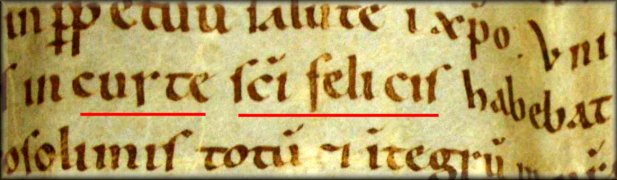 in ꝑpetuū salute i xp̄o. Vni
in curte sc̄i felicis habebat
osolimis totū ⁊ ītegrū